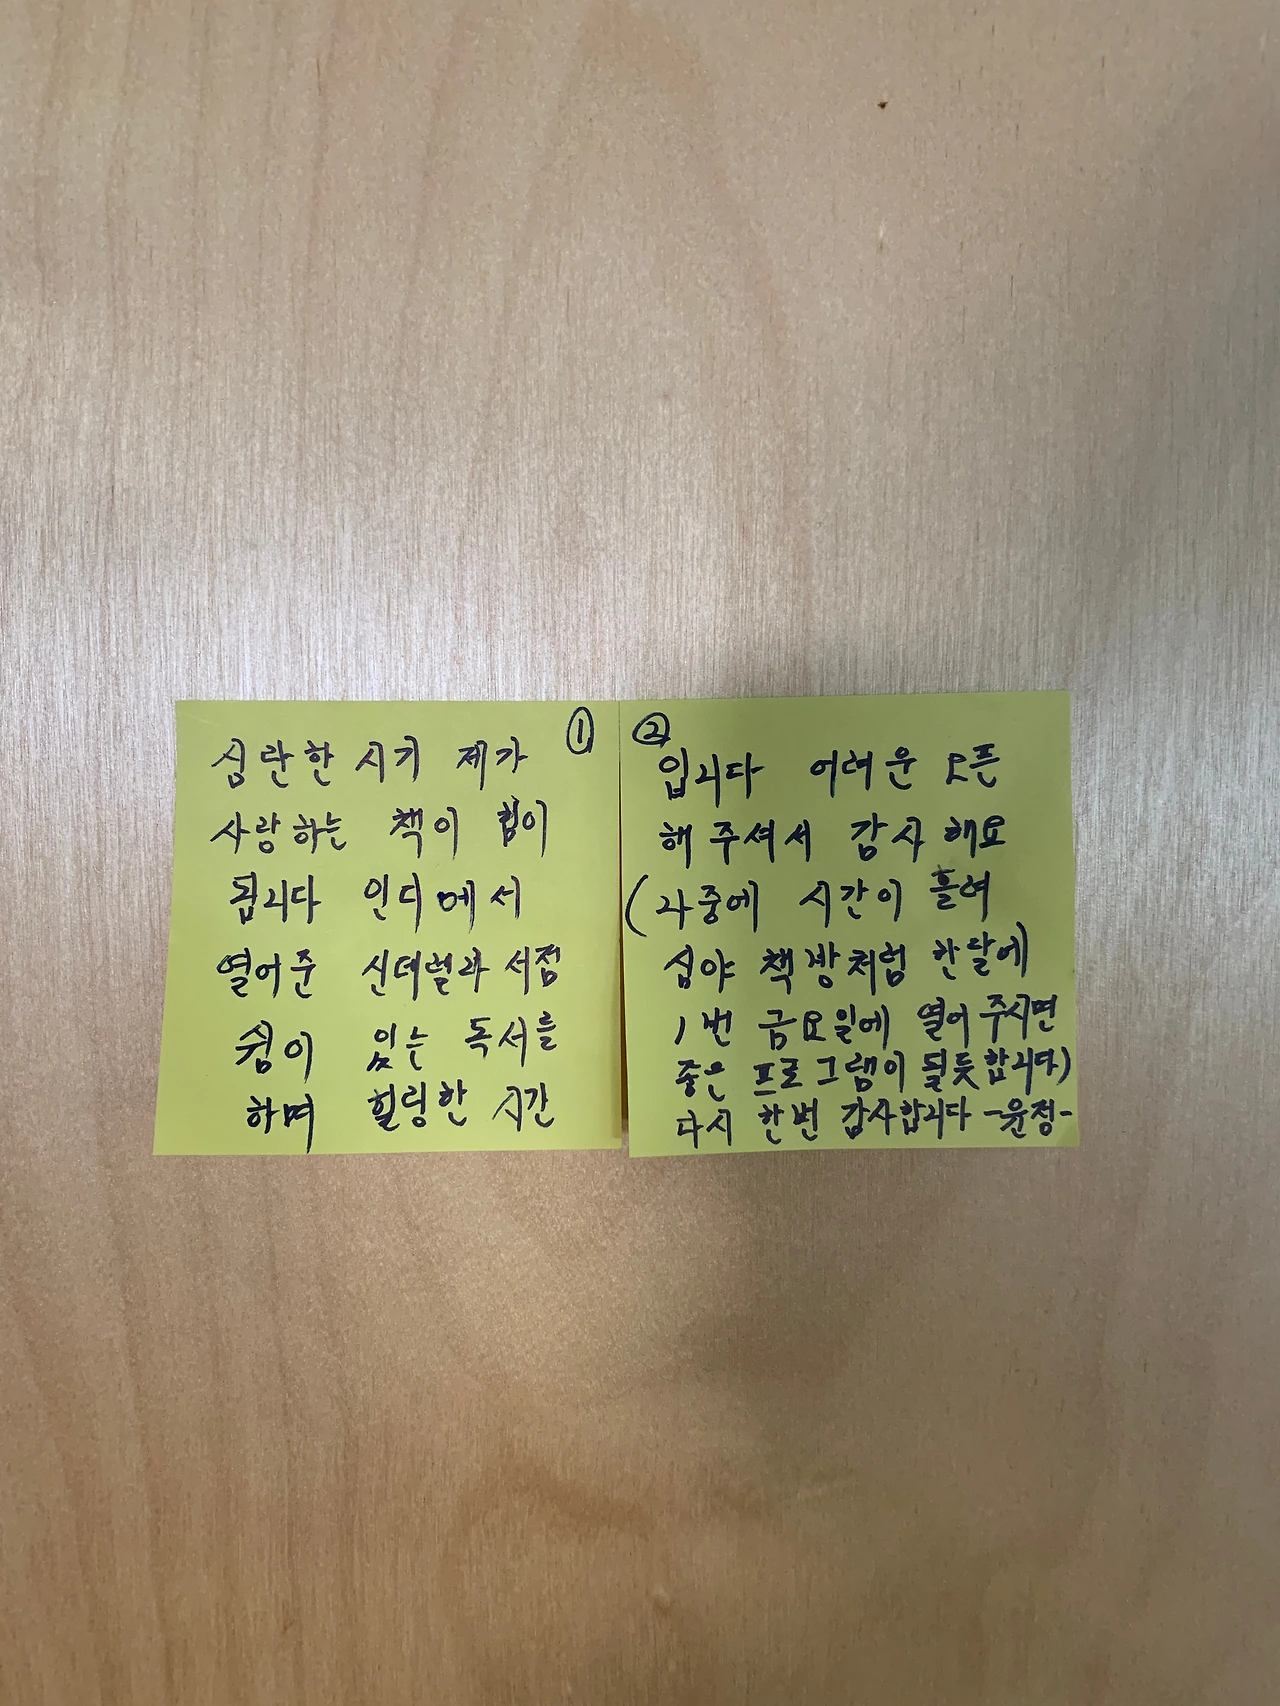 ①
심란한 시기 제가
사랑하는 책이 힘이
됩니다 인디에서
열어준 신데렐라 서점
쉼이 있는 독서를
하며 힐링한 시간
②
입니다 어려운 오픈
해 주셔서 감사해요
(나중에 시간이 흘여
심야 책방처럼 한달에
1번 금요일에 열어 주시면
좋은 프로그램이 될듯합니다)
다시 한번 감사합니다 -윤정-